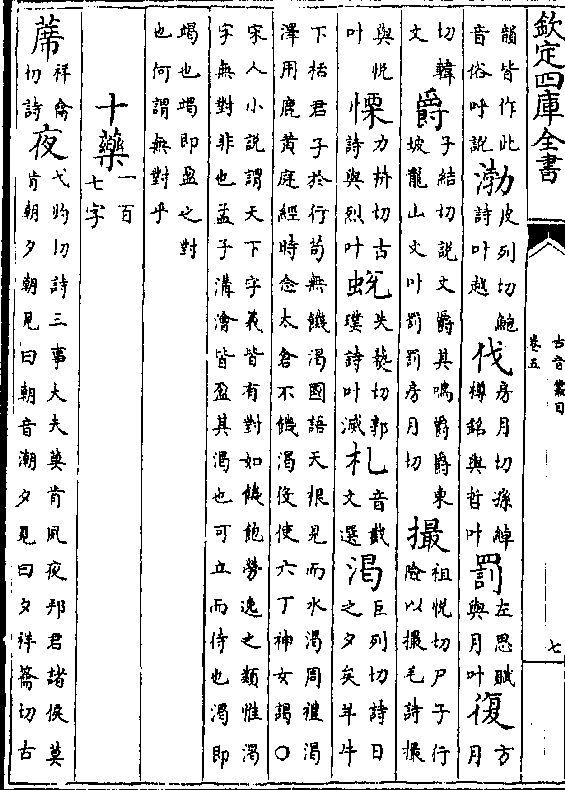 欽定四庫全書
古音叢目
卷五
七
韻皆作此
音俗呼説渤皮列切鮑
詩叶越伐房月切孫綽
樽銘與哲叶罰左思賦
與月叶復方
月
切韓
文爵子結切説文爵其鳴爵爵東
坡龍山文叶罰罰房月切撮祖悦切尸子行
險以撮毛詩撮
與悦
叶慄力枿切古
詩與烈叶蛻失爇切郭
璞詩叶滅札音截
文選渴巨列切詩日
之夕矣羊牛
下栝君子于行苟無饑渴國語天根見而水渴周禮渴
澤用鹿黄庭經時念太倉不饑渴伇使六丁神女謁○
宋人小説謂天下字義皆有對如饑飽勞逸之類惟渴
字無對非也孟子溝澮皆盈其渴也可立而待也渴即
竭也竭即盈之對
也何謂無對乎
十藥一百
七字
蓆祥龠
切詩夜弋灼切詩三事大夫莫肯夙夜邦君諸侯莫
肯朝夕朝見曰朝音潮夕見曰夕祥籥切古